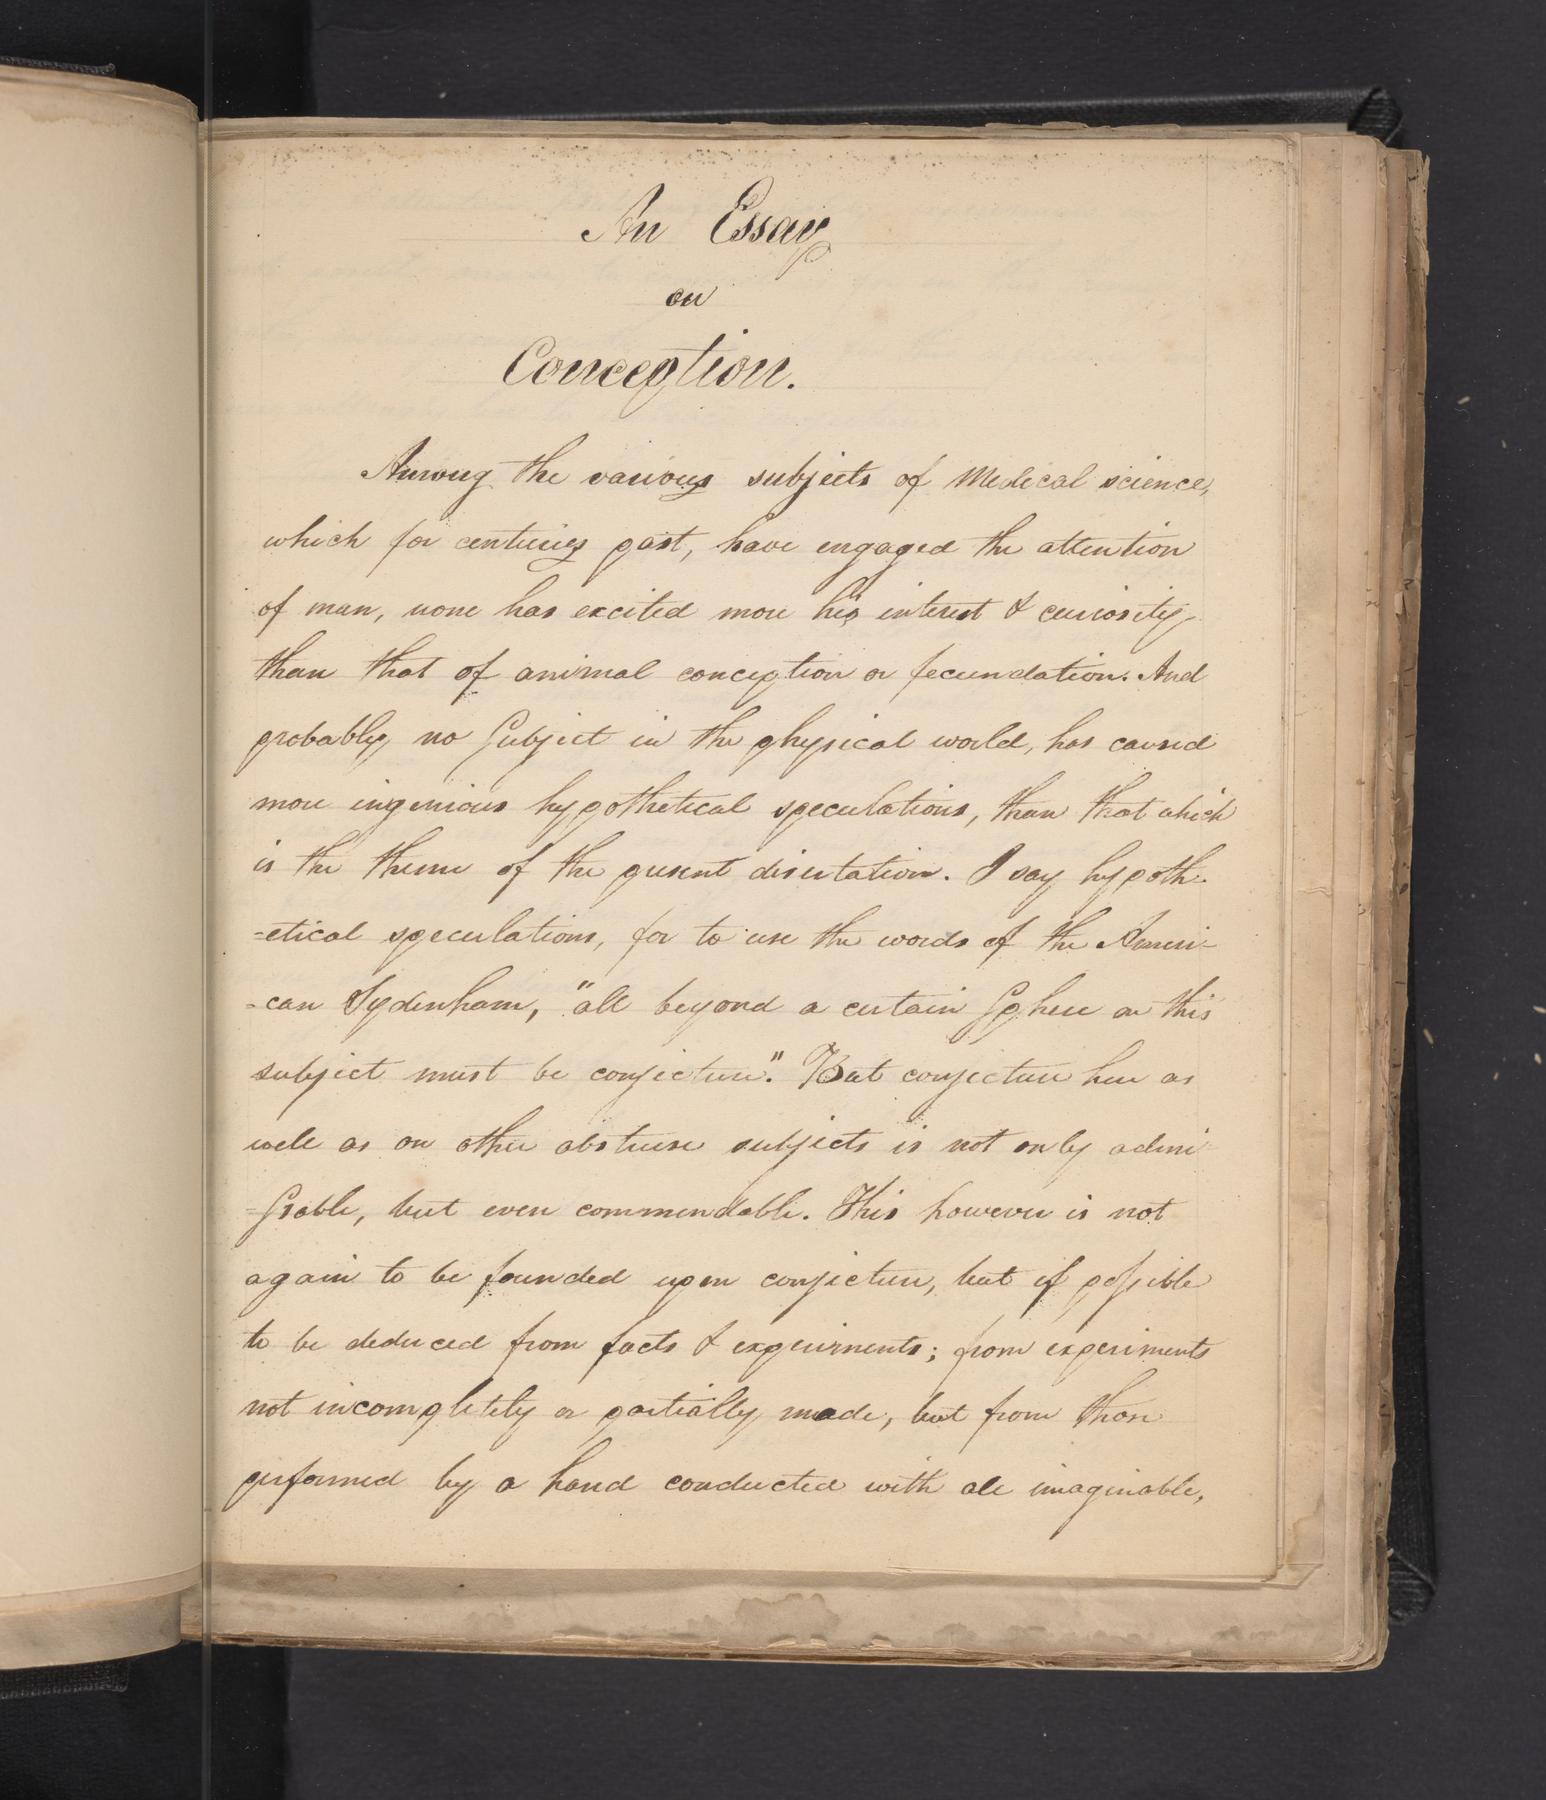 An Essay
on
Conception.
Among the various subjects of Medical science,
which for centuries past, have engaged the attention
of man, none has excited more his interest & curiosity,
than that of animal conception or fecundation. And
probably no subject in the physical world, has caused
more ingenious hypothetical speculations, than that which
is the theme of the present disertation. I say hypoth-
=etical speculations, for to use the words of the Ameri-
-can Sydenham, "all beyond a certain sphere on this
subject must be conjecture." But conjecture here as
well as on other abstruse subjects is not only admi
=ssable, but even commendable. This however is not
again to be founded upon conjecture, but if possible
to be deduced from facts & experiments; from experiments
not incompletely or partially made, but from those
performed by a hand conducted with all imaginable,